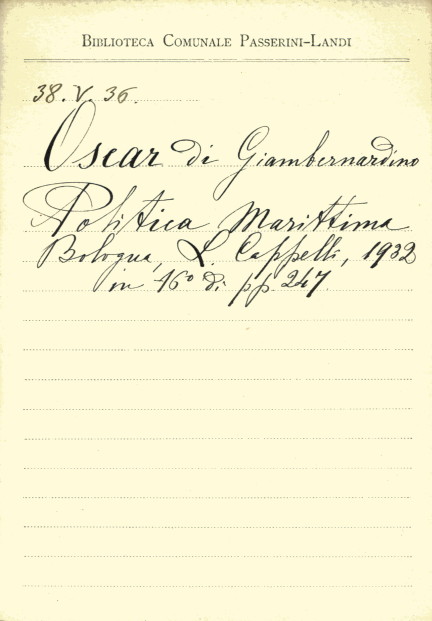 BIBLIOTECA COMUNALE PASSERINI-LANDI
38. V. 36.
Oscar di Giambernardino
Politica Marittima
Bologna, L. Cappelli, 1932
in 16° di pp. 247.